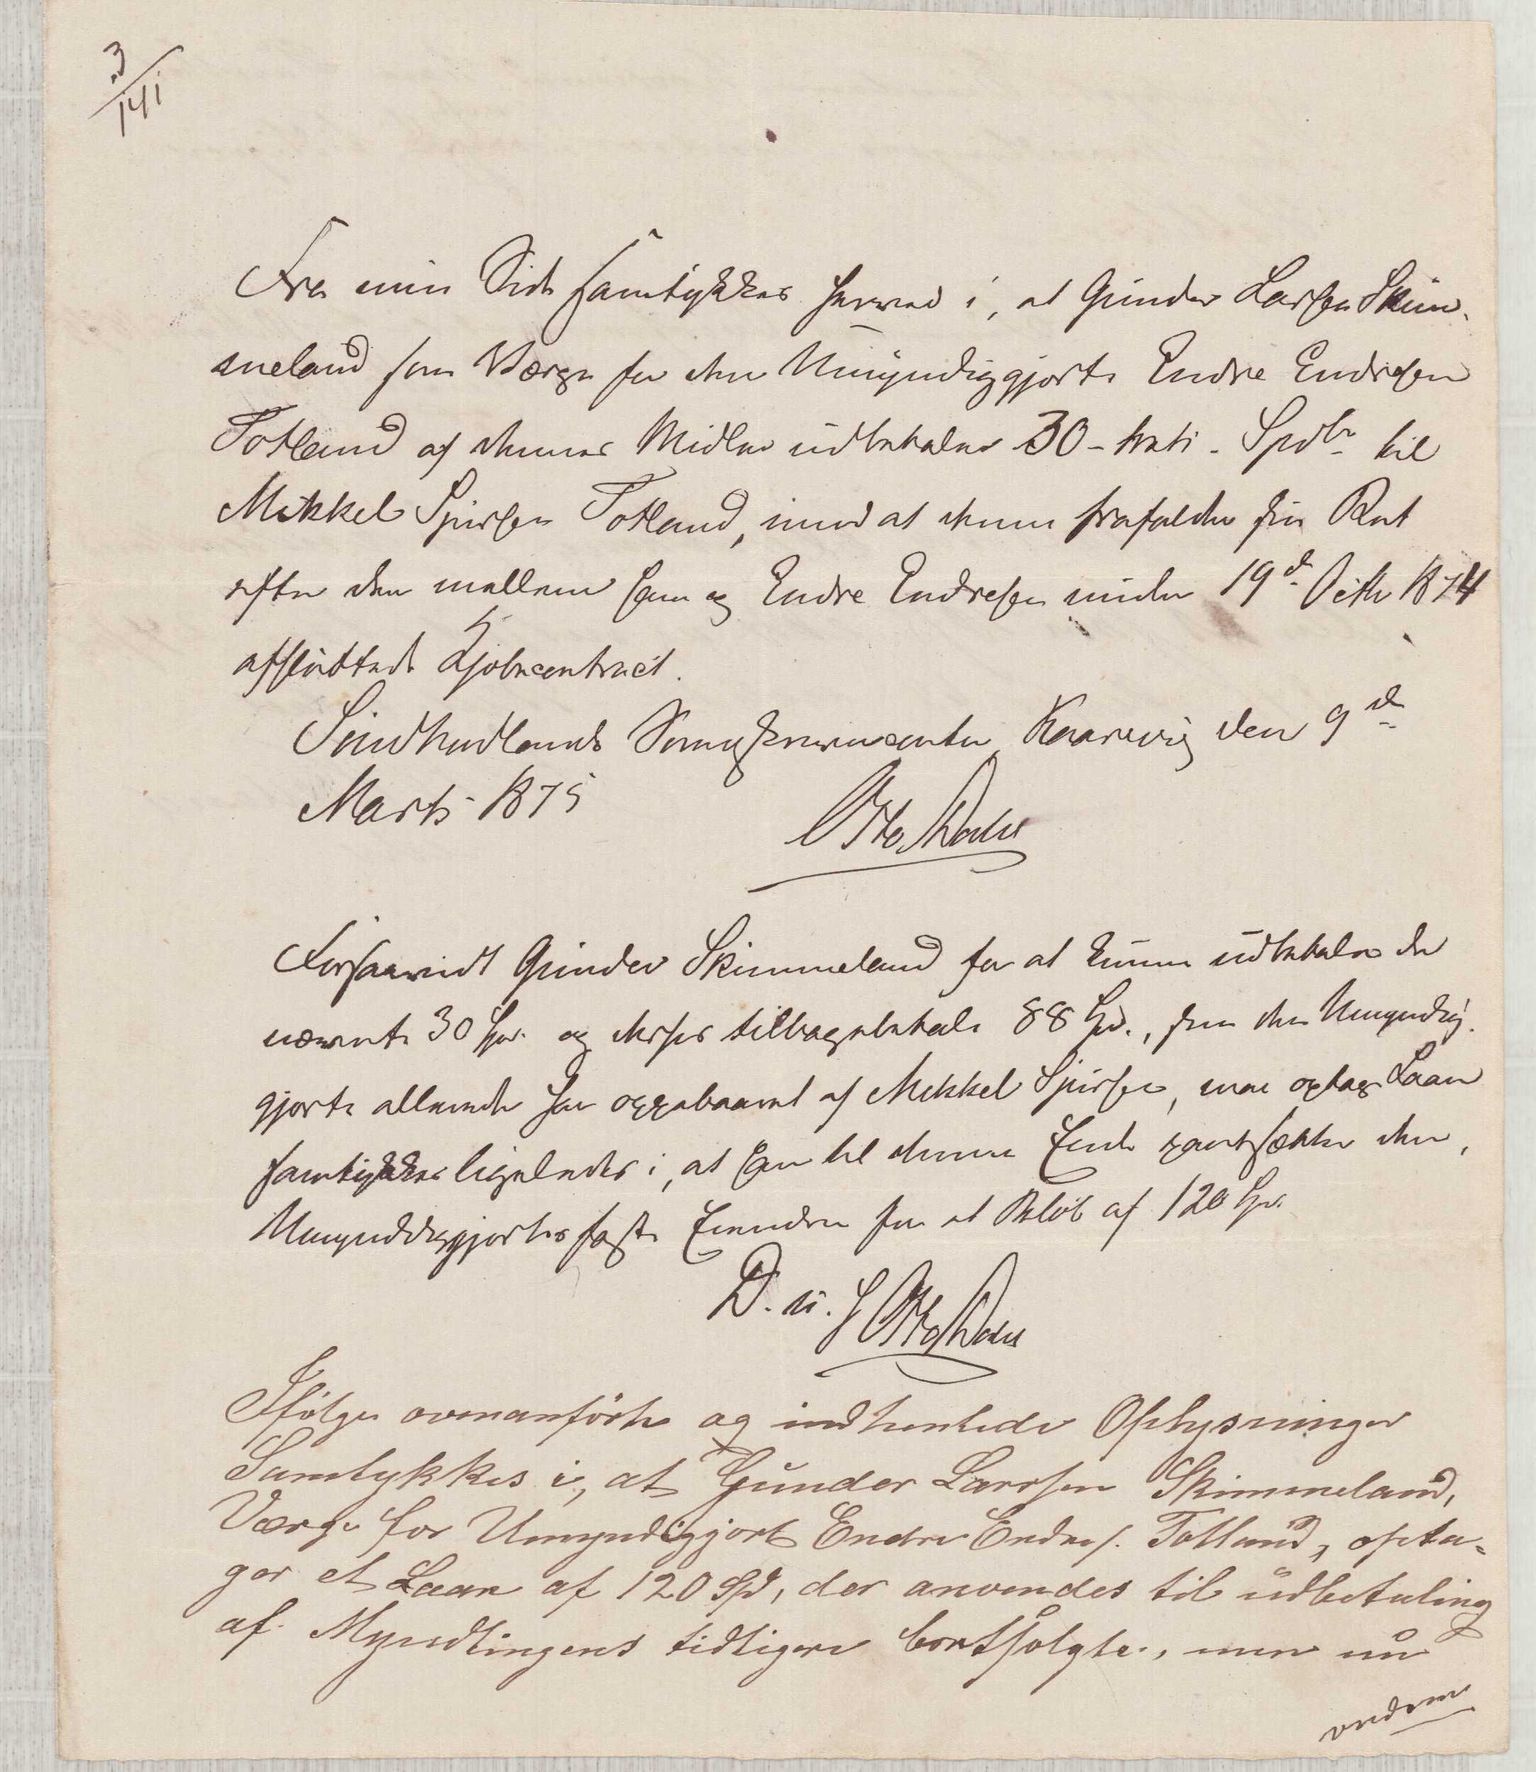 3/141
Fra min Side samtykkes herved i, at Gunder Larsen Skim-
meland som Værge for den Umyndiggjorte Endre Endresen
Totland af dennes Midler udbetaler 30 - treti - Spdlr til
Mikkel Sjursen Totland, imod at denne frafalder sin Ret
efter den mellem ham og Endre Endresen under 19de Octbr 1874
afsluttede Kjøbecontract.
Søndhordlands Sorenskrivercontor, Kaarevig den 9de
Marts 1875
Otto
Forsaavidt Gunder Skimmeland for at kunne udbetale de
nævnte 30 Spd. og desuden tilbagebetale 88 Spd., som den Umyndig-
gjorte allerede har oppebaaret af Mikkel Sjursen, maa optage Laan
samtykkes ligeledes i, at han til denne Ende pantsætter den
Umyndiggjortes faste Eiendom for et Beløb af 120 Spd.
D. u. s. Otto
Ifølge ovenanførte og indhentede Oplysninger
Samtykkes i, at Gunder Larsen Skimmeland,
Værge for Umyndiggjort Endre Endres. Totland, opta-
ger et Laan af 120 Spd, der anvendes til udbetaling
af Myndlingens tidligere bortsolgte, men nu